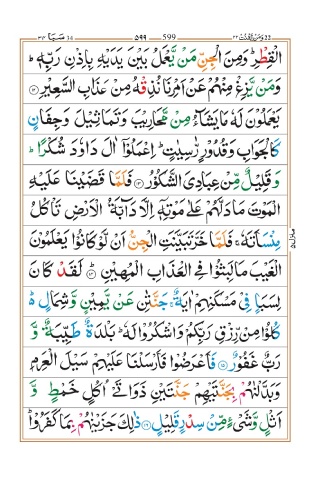 الْقِطْرِ ؕ وَمِنَ الْجِنِّ مَنْ يَّعْمَلُ بَيْنَ يَدَيْهِ بِاِذْنِ رَبِّهٖ ؕ
وَمَنْ يَّزِغْ مِنْهُمْ عَنْ اَمْرِنَا نُذِقْهُ مِنْ عَذَابِ السَّعِيْرِ ۝۱۲
يَعْمَلُوْنَ لَهٗ مَا يَشَآءُ مِنْ مَّحَارِيْبَ وَتَمَاثِيْلَ وَجِفَانٍ
كَالْجَوَابِ وَقُدُوْرٍ رّٰسِيٰتٍ ؕ اِعْمَلُوْۤا اٰلَ دَاوٗدَ شُكْرًا ؕ
وَقَلِيْلٌ مِّنْ عِبَادِيَ الشَّكُوْرُ ۝۱۳ فَلَمَّا قَضَيْنَا عَلَيْهِ
الْمَوْتَ مَا دَلَّهُمْ عَلٰى مَوْتِهٖۤ اِلَّا دَآبَّةُ الْاَرْضِ تَاْكُلُ
مِنْسَاَتَهٗ ۚ فَلَمَّا خَرَّ تَبَيَّنَتِ الْجِنُّ اَنْ لَّوْ كَانُوْا يَعْلَمُوْنَ
الْغَيْبَ مَا لَبِثُوْا فِي الْعَذَابِ الْمُهِيْنِ ؕ۝۱۴ لَقَدْ كَانَ
لِسَبَاٍ فِيْ مَسْكَنِهِمْ اٰيَةٌ ۚ جَنَّتٰنِ عَنْ يَّمِيْنٍ وَّشِمَالٍ ؕ
كُلُوْا مِنْ رِّزْقِ رَبِّكُمْ وَاشْكُرُوْا لَهٗ ؕ بَلْدَةٌ طَيِّبَةٌ وَّ
رَبٌّ غَفُوْرٌ ۝۱۵ فَاَعْرَضُوْا فَاَرْسَلْنَا عَلَيْهِمْ سَيْلَ الْعَرِمِ
وَبَدَّلْنٰهُمْ بِجَنَّتَيْهِمْ جَنَّتَيْنِ ذَوَاتَيْ اُكُلٍ خَمْطٍ وَّ
اَثْلٍ وَّشَيْءٍ مِّنْ سِدْرٍ قَلِيْلٍ ۝۱۶ ذٰلِكَ جَزَيْنٰهُمْ بِمَا كَفَرُوْا ؕ